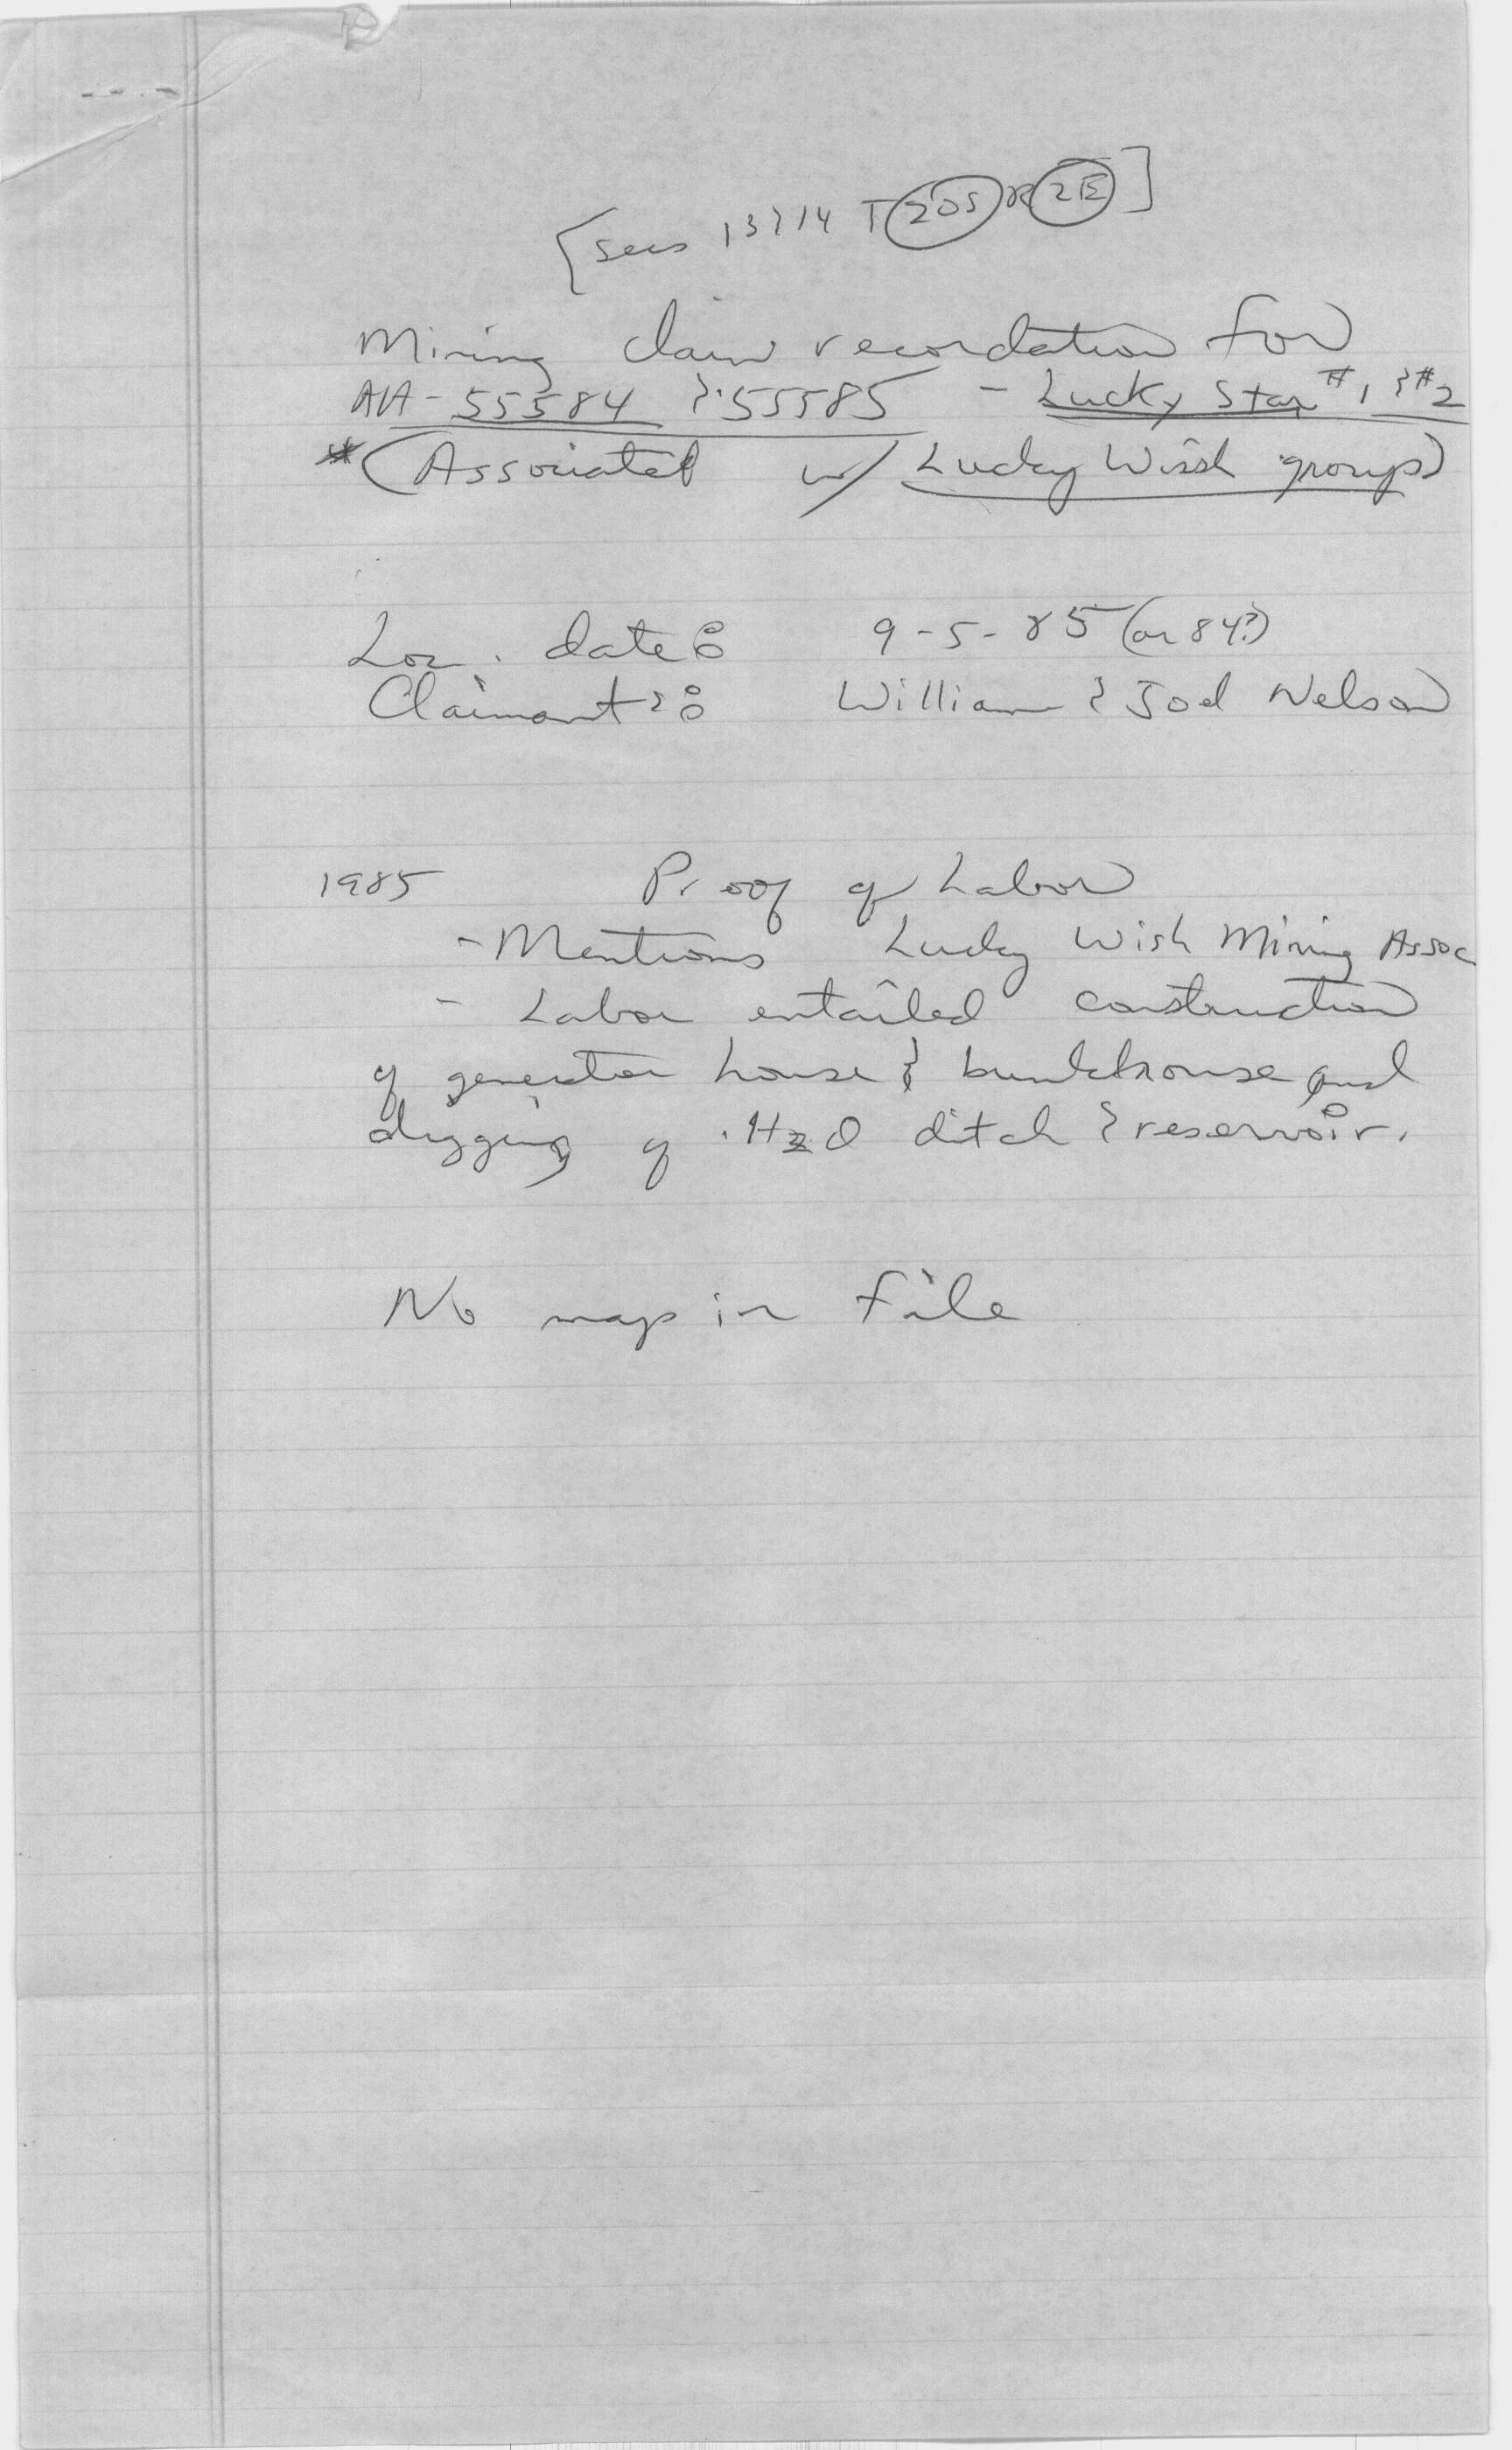 [Secs 13 & 14 T 20S R 2E]
Mining claim recordation for
AA-55584 & 55585 - Lucky Star #1 & #2
* (Associated w/ Lucky Wish group)
Loc. date: 9-5-85 (or 84?)
Claimants: William & Joel Nelson
1985 Proof of Labor
- Mentions Lucky Wish Mining Assoc
- Labor entailed construction
of generator house & bunkhouse and
digging of H2O ditch & reservoir.
No map in file